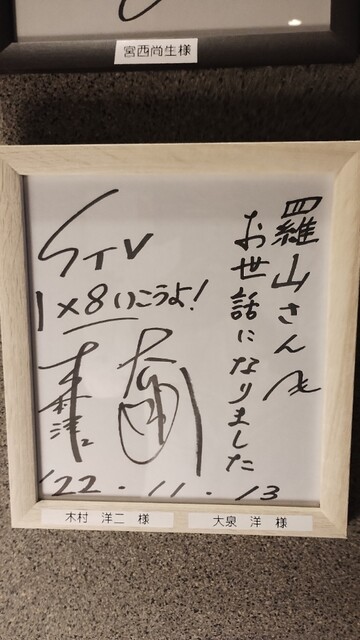 宮西尚生様
羅山さん江
お世話になりました
STV
1×8いこうよ!
木村洋二
'22.11.13
木村 洋二 様
大泉 洋 様